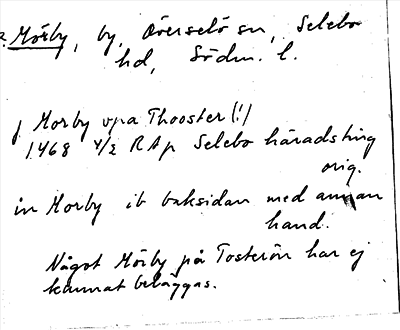 Mörby, by, Överselö sn, Selebo
hd, Södm. l.
j Morby vpa Thooster (!)
1468 4/2 RAp Selebo häradsting
orig.
in Morby ib baksidan med annan
hand.
Något Mörby på Tosterön har ej
kunnat beläggas.